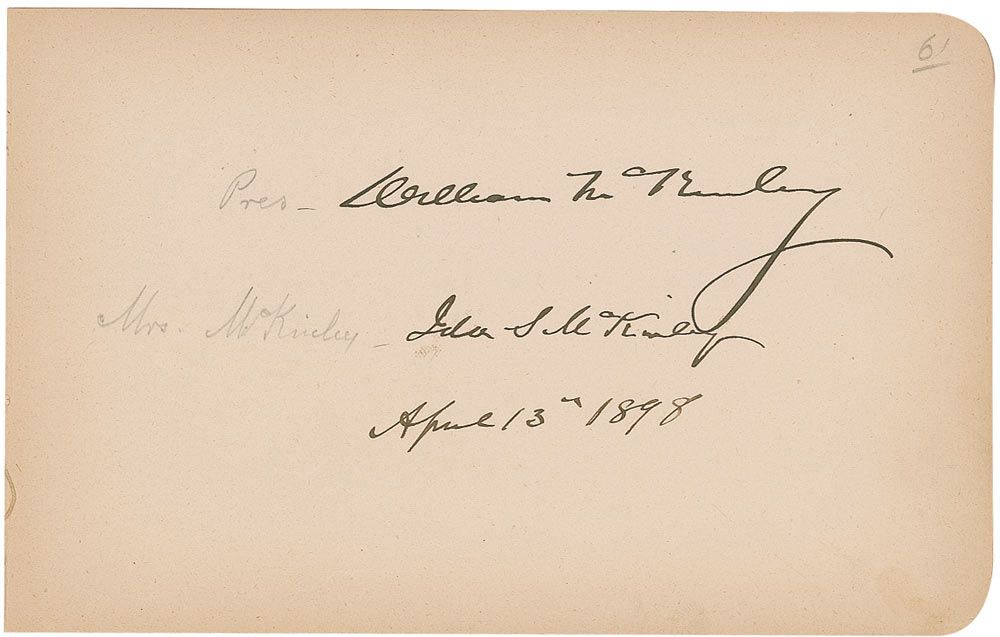 61
Pres - William McKinley
Mrs. McKinley - Ida S McKinley
April 13th 1898